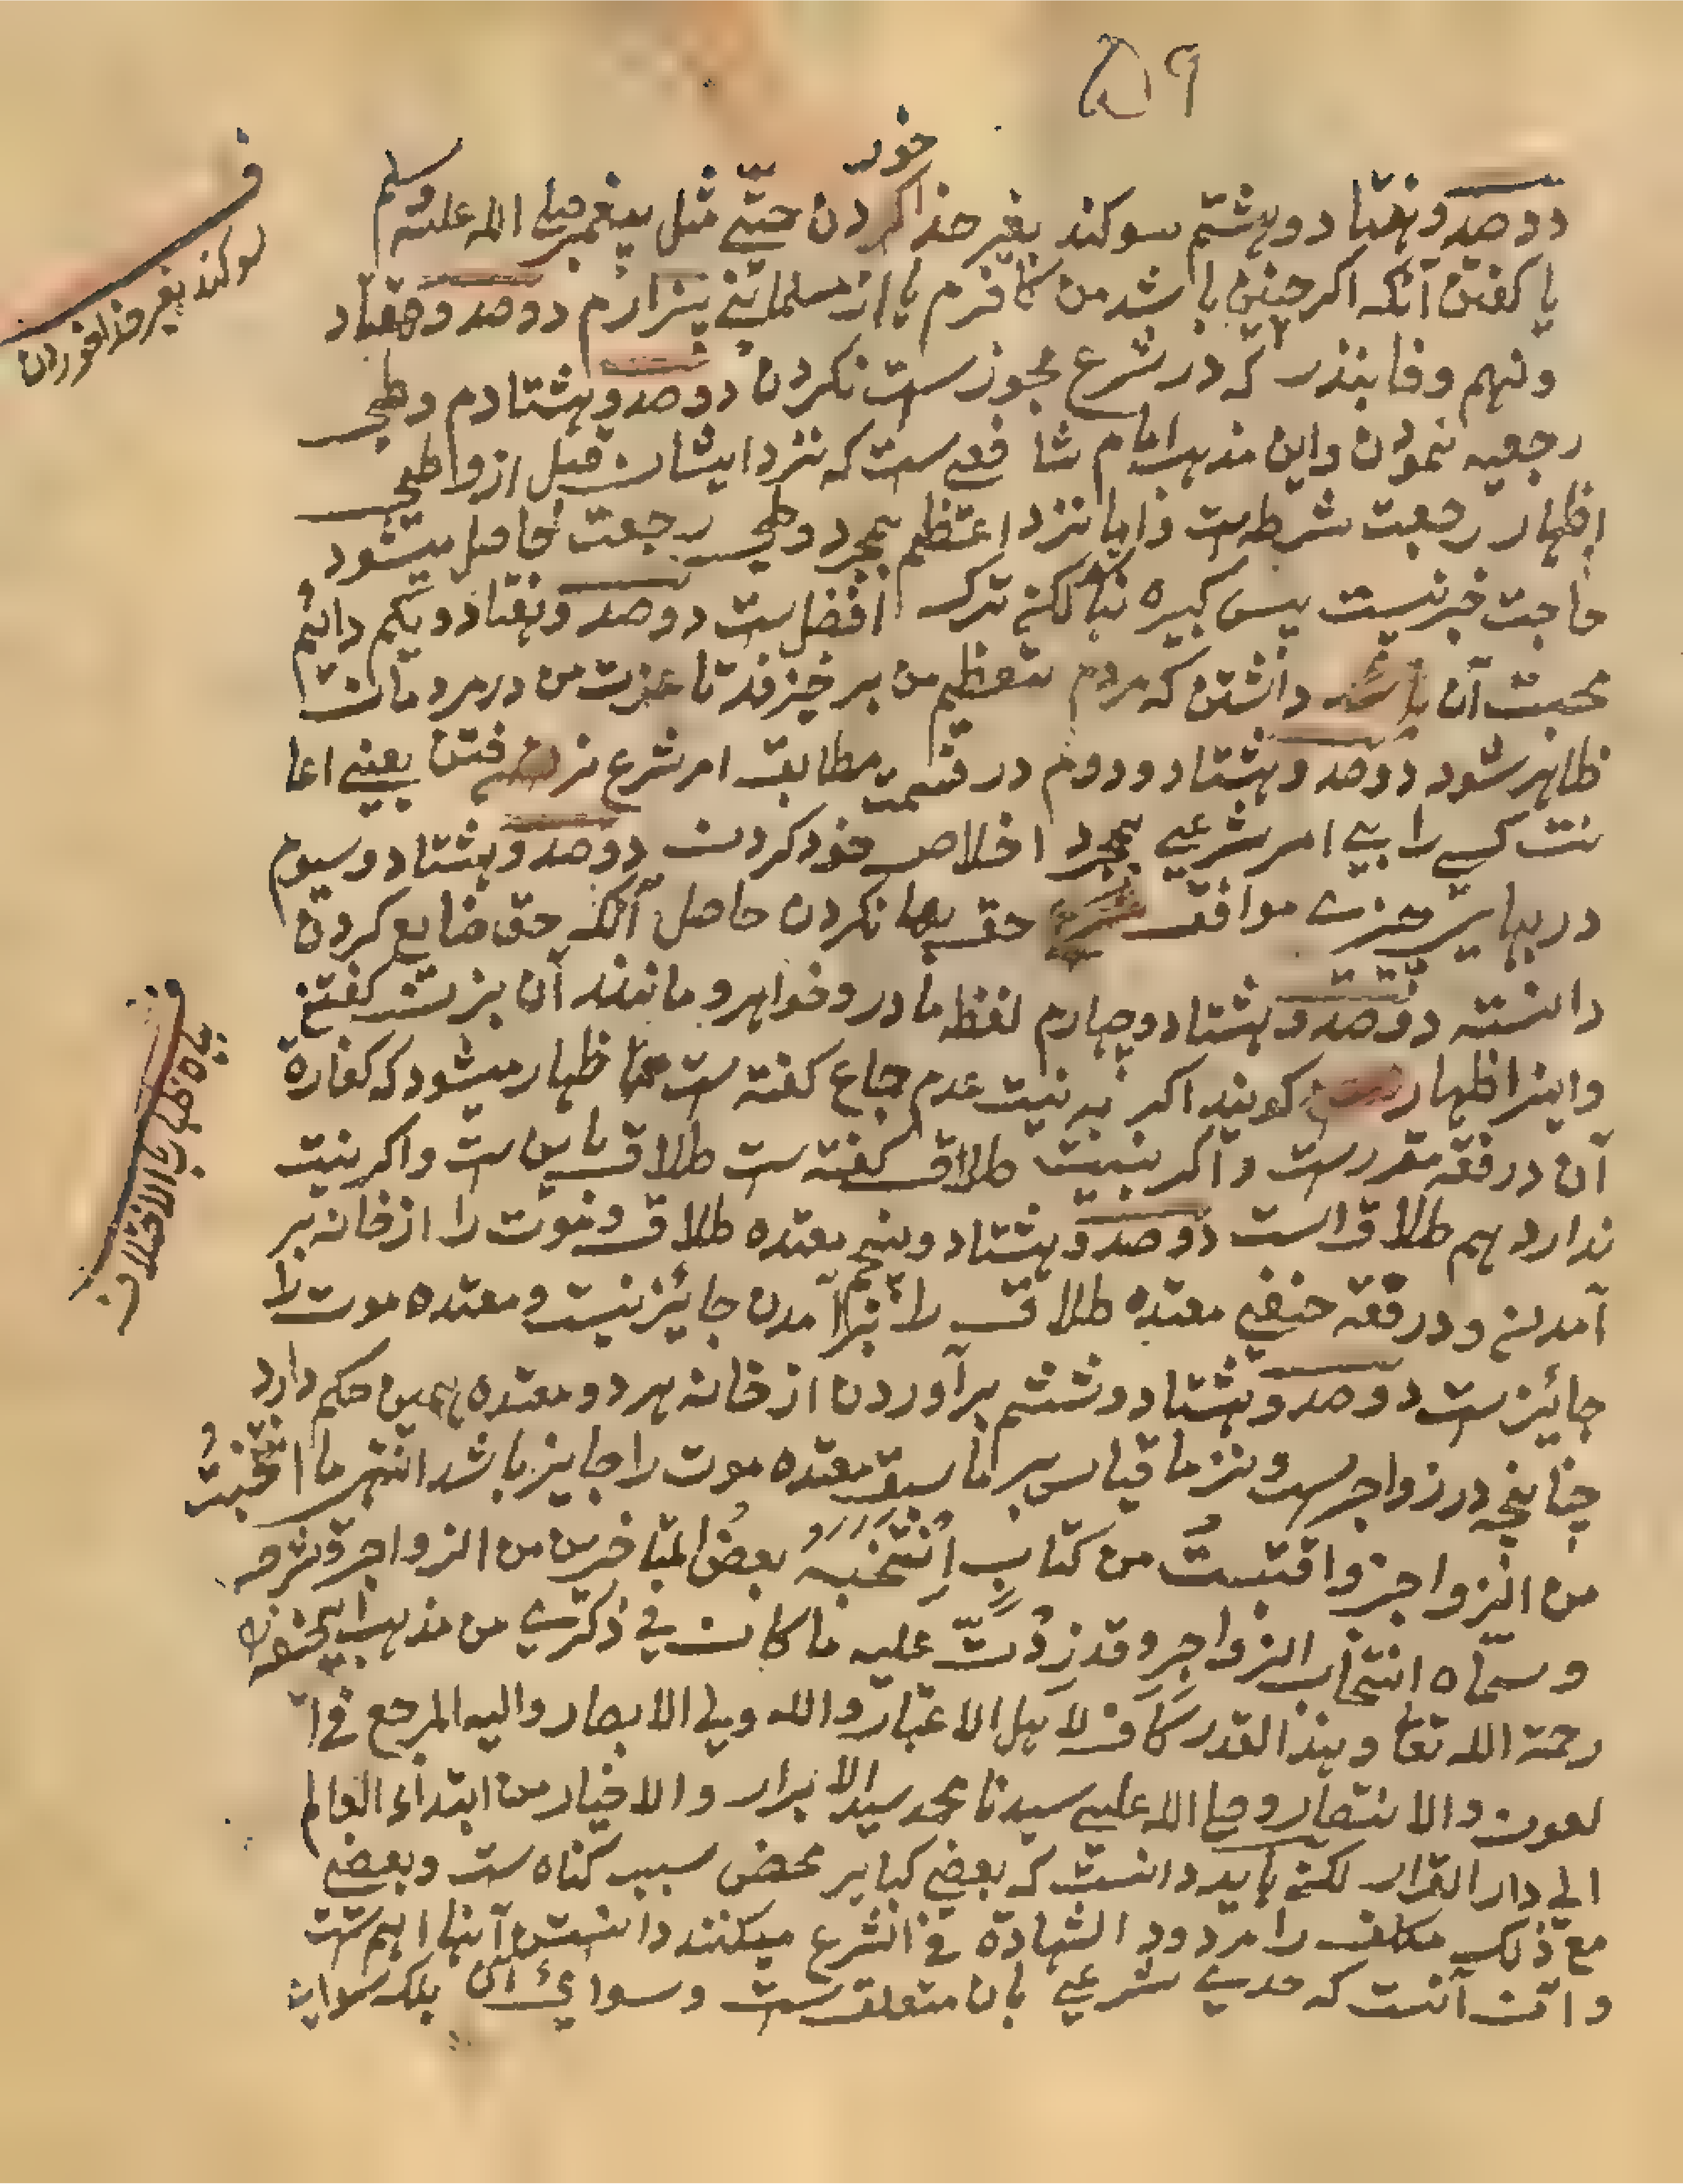 ۵۹
خورد
دوصد و هفتاد و هشتم سوکند بغیر خدا کردن حتّی مثل پیغمبر صلی الله علیه وسلم
یا کفتن آنکه اکر چنین باشد من کافرم یا از مسلمانی بیزارم دوصد و هفتاد
ونهم وفا بنذر که در شرع مجوز ست نکردن دوصد و هشتادم وطی
رجعیه نمودن واین مذهب امام شافعی ست که نزد ایشان قبل از وطی
اظهار رجعت شرط ست واما نزد اعظم بمجرد وطی رجعت حاصل میشود
حاجت خبر نیست پس کبیره نباشد لکن ترک افضل ست دوصد و هشتاد ویکم دائم
محبت آن داشتن که مردم بتعظیم من برخیزند تا عزت من در مردمان
ظاهر شود دوصد و هشتاد ودوم در قسمت مطابقت امر شرع نرفتن یعنی اعا
نت کسی را بی امر شرعی بمجرد اخلاص خود کردن دوصد و هشتاد وسیوم
در بهای چیزی موافق شرع حق بها نکردن حاصل آنکه حق ضایع کردن
دانسته دوصد و هشتاد وچهارم لفظ مادر وخواهر ومانند آن بزن کفتن
واینرا ظهار کویند اکر به نیت عدم جماع کفته ست ظهار میشود که کفارۀ
آن در فقه مقرر ست واکر بنیت طلاق کفته ست طلاق باین ست واکر نیت
ندارد هم طلاق است دوصد و هشتاد وپنجم معتده طلاق وموت را از خانه بر
آمدن ودر فقه حنفی معتده طلاق را برآمدن جائز نیست ومعتده موت را
جائز ست دوصد و هشتاد وششم برآوردن از خانه هر دو معتده همین حکم دارد
چنانچه در زواجر ست ونزد ما قیاس بر ما سبق معتده موت را جایز باشد انتهی ما انتخبتُ
من الزواجر واقتبستُ من کتابٍ اِنْتَخَبَهُ بعضُ المتاخرین من الزواجر وشرحه
وسمّاه انتخاب الزواجر وقد زِدْتُ علیه ما کان فی ذکری من مذهب ابیحنیفه
رحمة الله تعا وهذا القدر کافٍ لاهل الاعتبار والله ولی الابصار والیه المرجع فی ا
لعون والانتصار وصلی الله علی سیدنا محمد سید الابرار والاخیار من ابتداء العالم
الی دار القرار لکن باید دانست که بعضی کبایر محض سبب کناه ست وبعضی
مع ذلک مکلف را مردود الشهادة فی الشرع میکنند دانستن آنها اهم ست
و آنست که حدی شرعی بان متعلق ست وسوای آن بلکه سوای
ف
سوکند بغیر خدا خوردن
ف